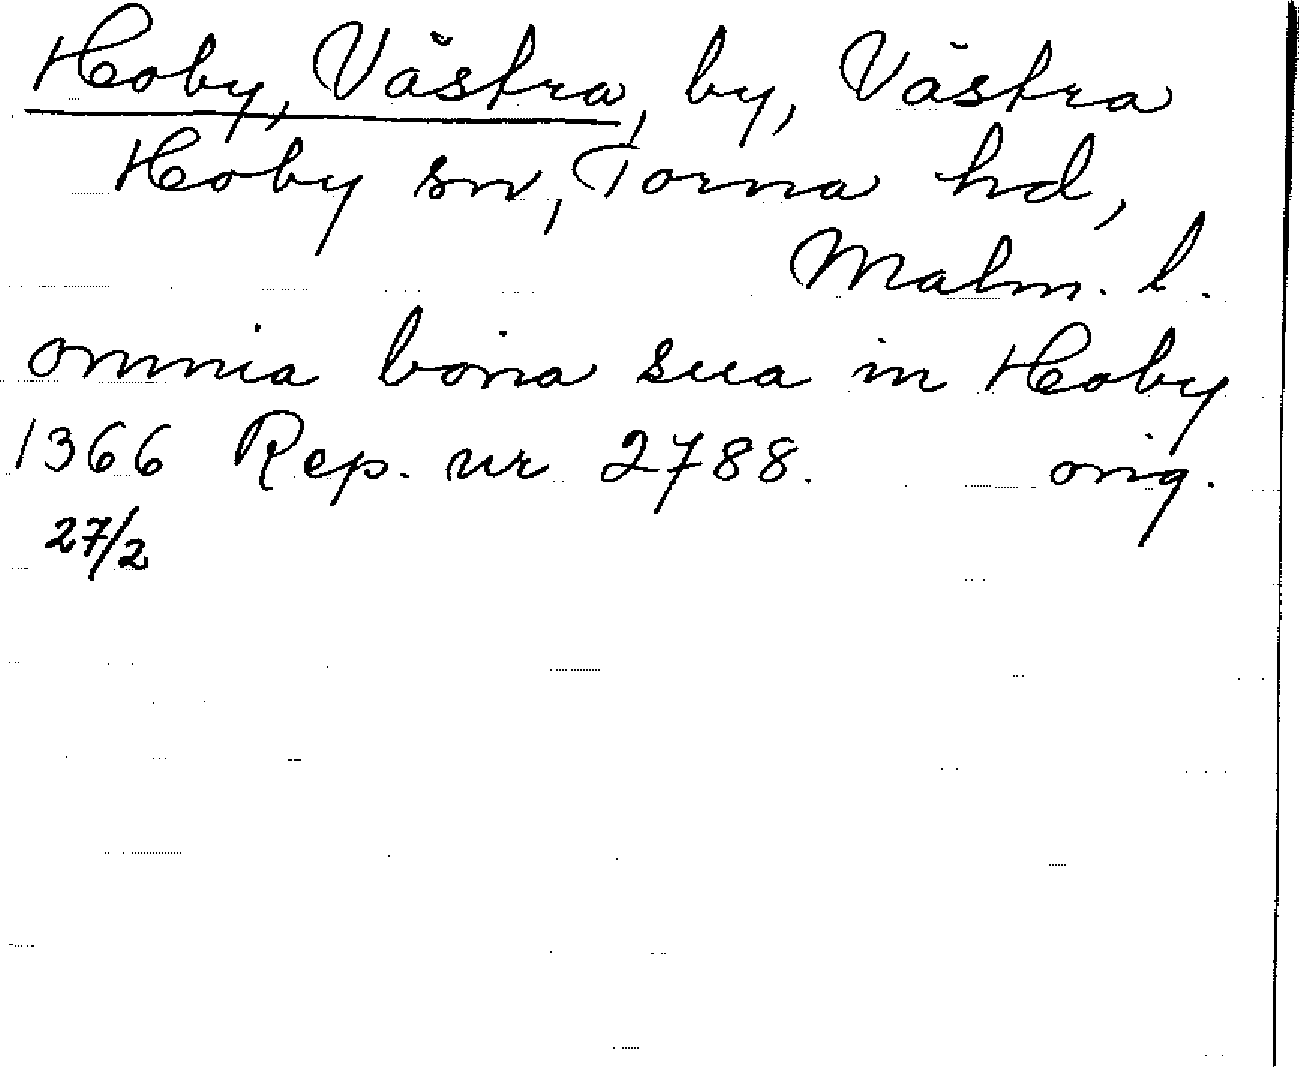 Hoby, Västra, by, Västra
Hoby sn, Torna hd,
Malm. l.
omnia bona sua in Hoby
1366 Rep. nr 2788. orig.
27/2